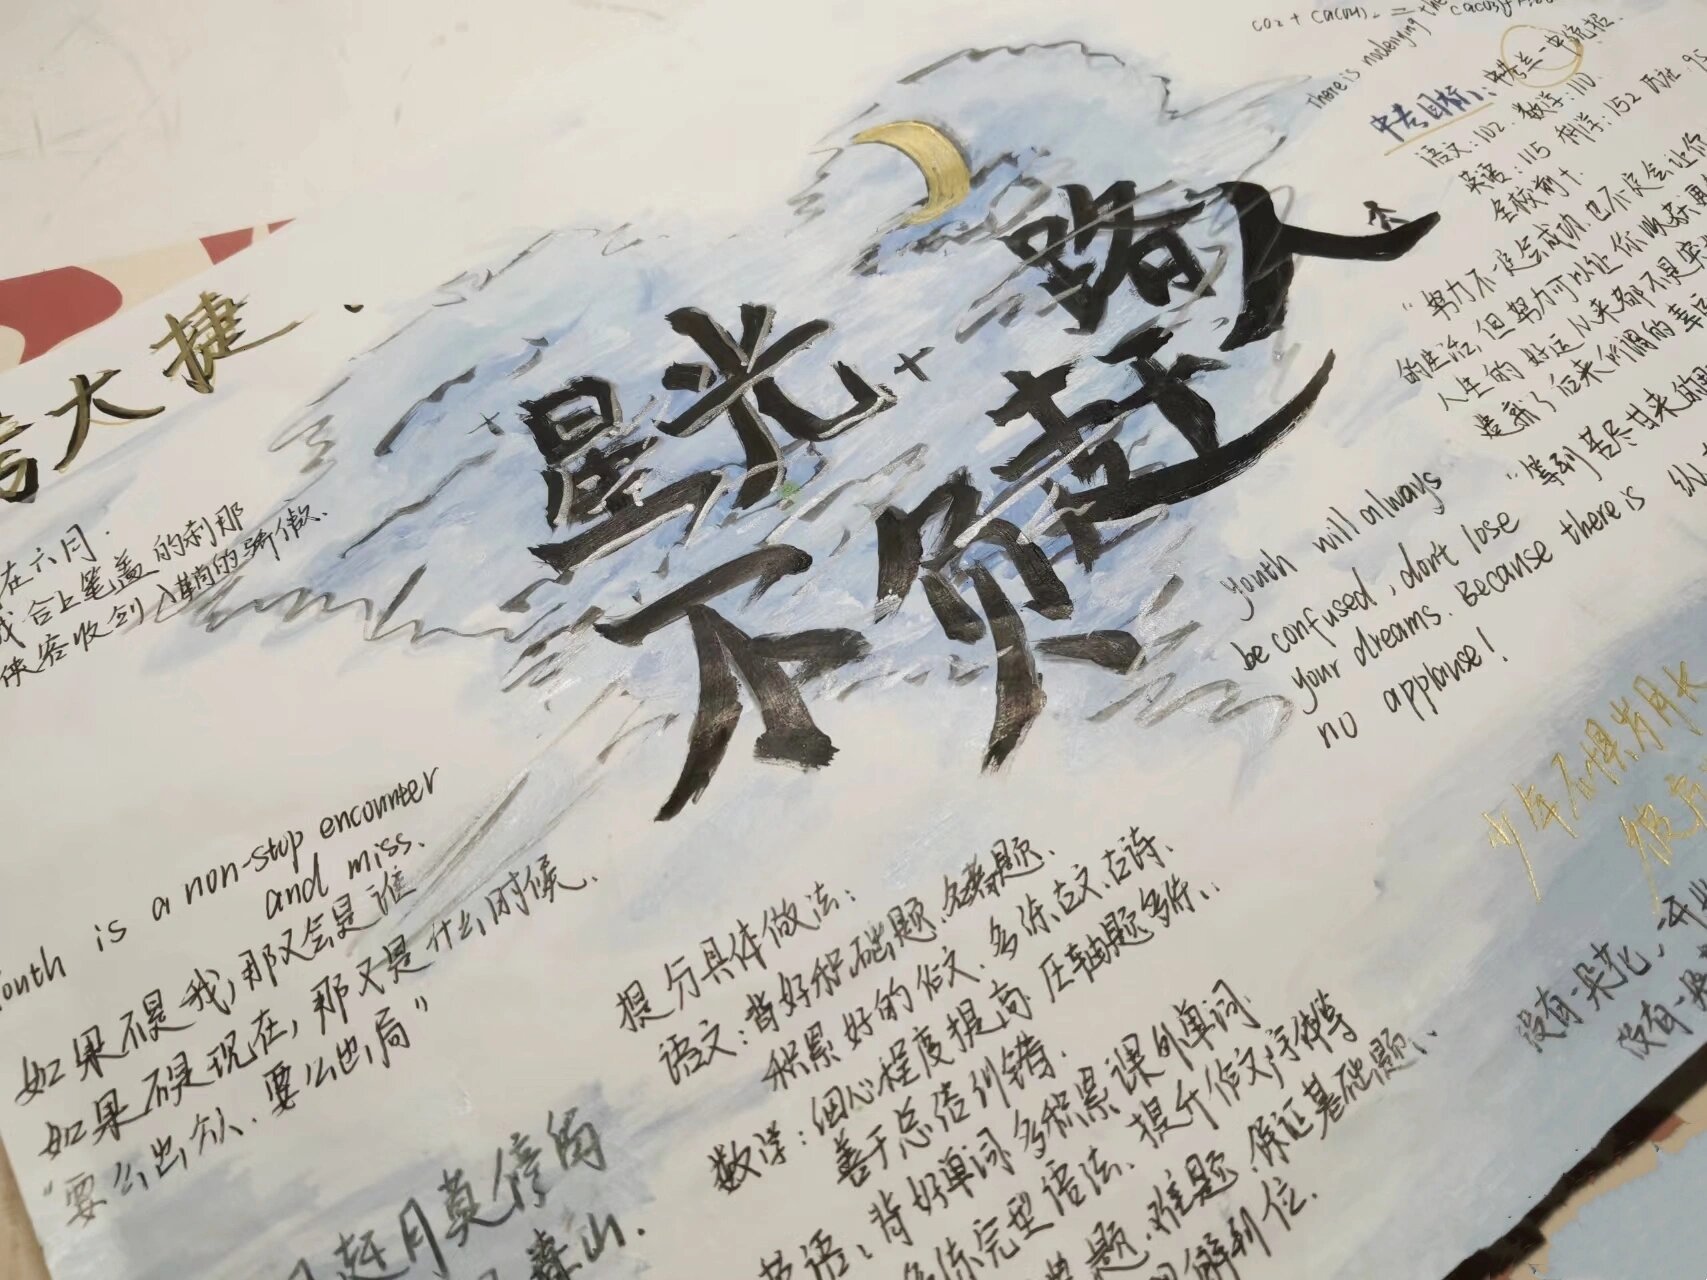 大捷
星光
不负赶
路人
在六月.
我合上笔盖的刹那
侠客收剑入鞘的骄傲.
Youth is a non-stop encounter
and miss.
如果不是我,那又会是谁
如果不是现在,那又是什么时候.
"要么出众.要么出局"
赶月莫停留
春山.
提分具体做法:
语文:背好积础题.名著题.
积累好的作文.多练古文.古诗.
数学:细心程度提高.压轴题多练..
善于总结纠错.
英语:背好单词.多积累课外单词.
多练完型 语法.提升作文字体等
题.难题.保证基础题..
解到位.
CO2 +
there is
中考目标:中考兰一中统招.
语文:102.数学:110.
英语:115 科学:152 历社:95
全校前十.
"努力不一定会成功.也不一定会让你
的生活,但努力可以让你收获
人生的好运从来都不是突
造就了后来所谓的幸
"等到苦尽甘来的
youth will always
be confused, don't lose
your dreams. Because there is
no applause!
少年不惧岁月长
彼
没有一朵花,
没有一